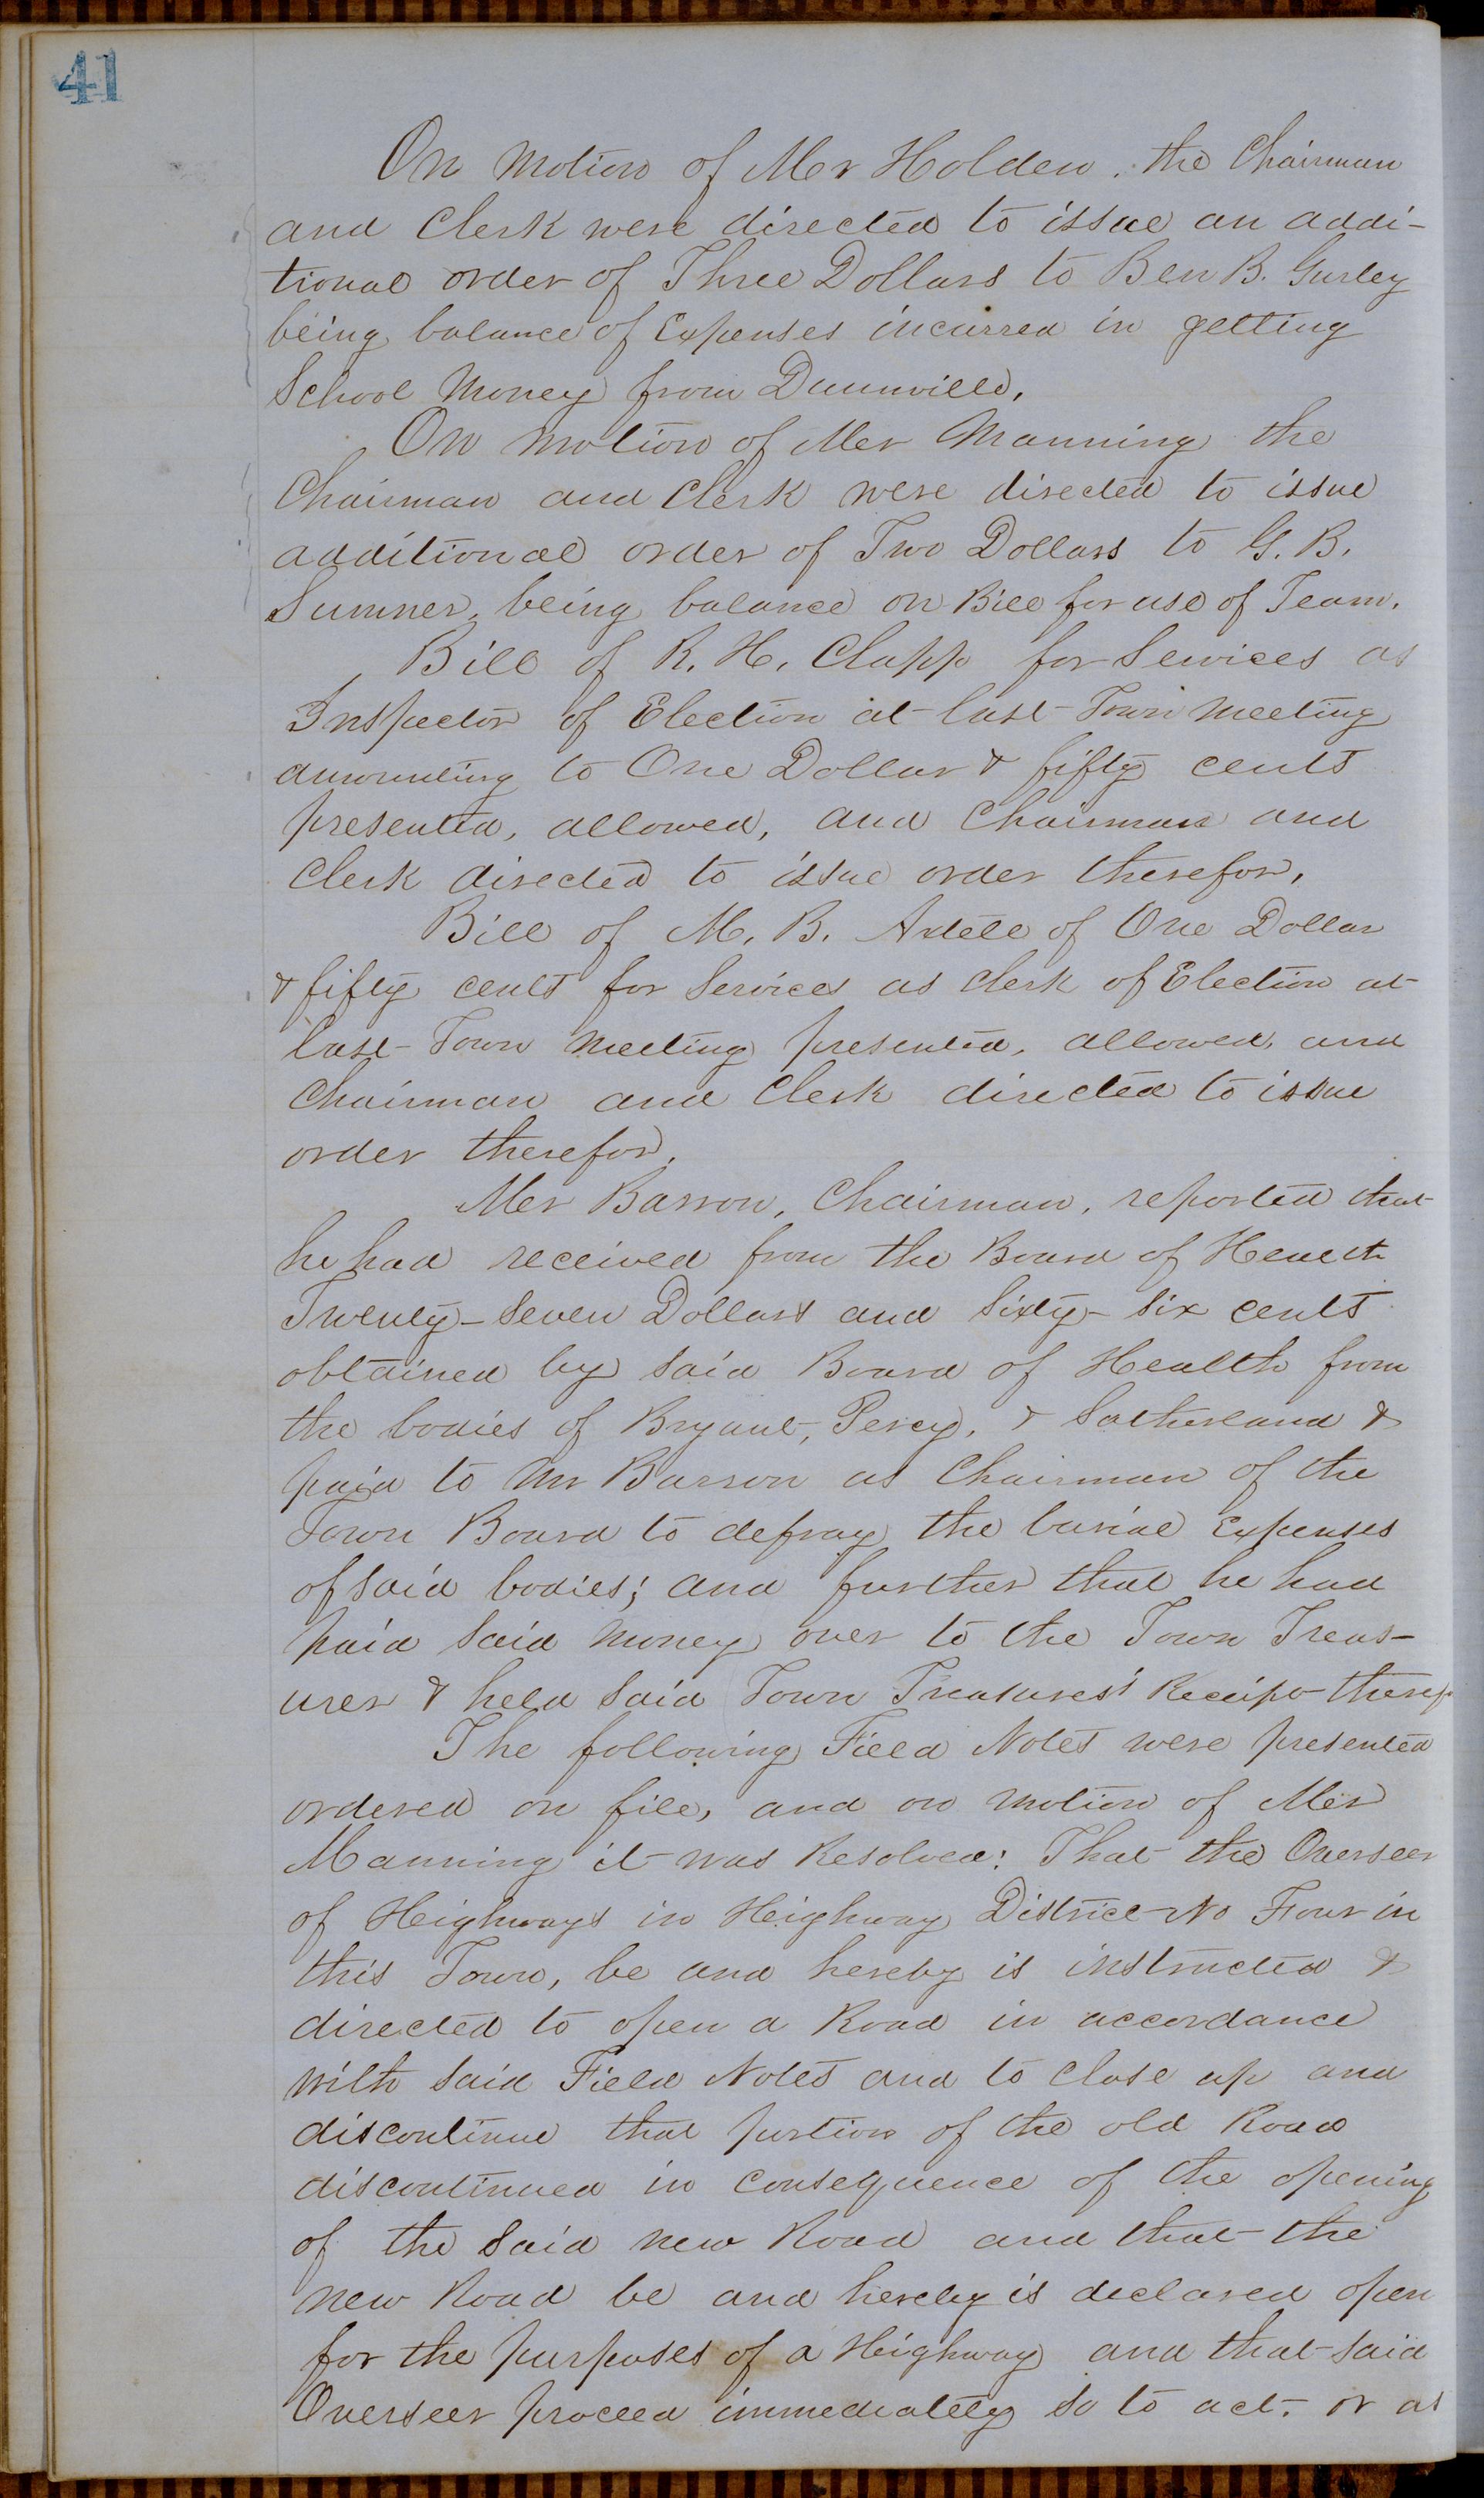 41
On motion of Mr Holden, the Chairman
and Clerk were directed to issue an addi-
tional order of Three Dollars to Ben B. Gurley
being balance of Expenses incurred in getting
School Money from Dunnville,
On motion of Mr Manning the
Chairman and Clerk were directed to issue
additional order of Two Dollars to G. B.
Sumner, being balance on Bill for use of Team.
Bill of R. H. Clapp for Services as
Inspector of Election at last Town Meeting
amounting to One Dollar & fifty cents
presented, allowed, and Chairman and
Clerk directed to issue order therefor,
Bill of M. B. Axtell of One Dollar
& fifty cents for Services as Clerk of Election at
last Town Meeting presented, allowed, and
Chairman and Clerk directed to issue
order therefor.
Mr Barron, Chairman, reported that
he had received from the Board of Health
Twenty-Seven Dollars and Sixty-Six cents
obtained by said Board of Health from
the bodies of Bryant, Percy, & Satherland &
paid to Mr Barron as Chairman of the
Town Board to defray the burial Expenses
of said bodies; and further that he had
paid said money over to the Town Treas-
urer & held said Town Treasurer's Receipt
The following Field Notes were presented
ordered on file, and on motion of Mr
Manning it was Resolved: That the Overseer
of Heighways in Heighway District No Four in
this Town, be and hereby is instructed &
directed to open a Road in accordance
with said Field Notes and to close up and
discontinue that portion of the old Road
discontinued in consequence of the opening
of the said new Road and that the
new Road be and hereby is declared open
for the purposes of a Heighway and that said
Overseer proceed immediately so to act. or as